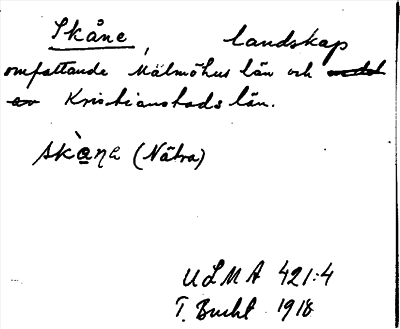 Skåne, landskap
omfattande Malmöhus län och
Kristianstads län.
skàna (Nätra)
ULMA 421:4
T. Bucht 1918